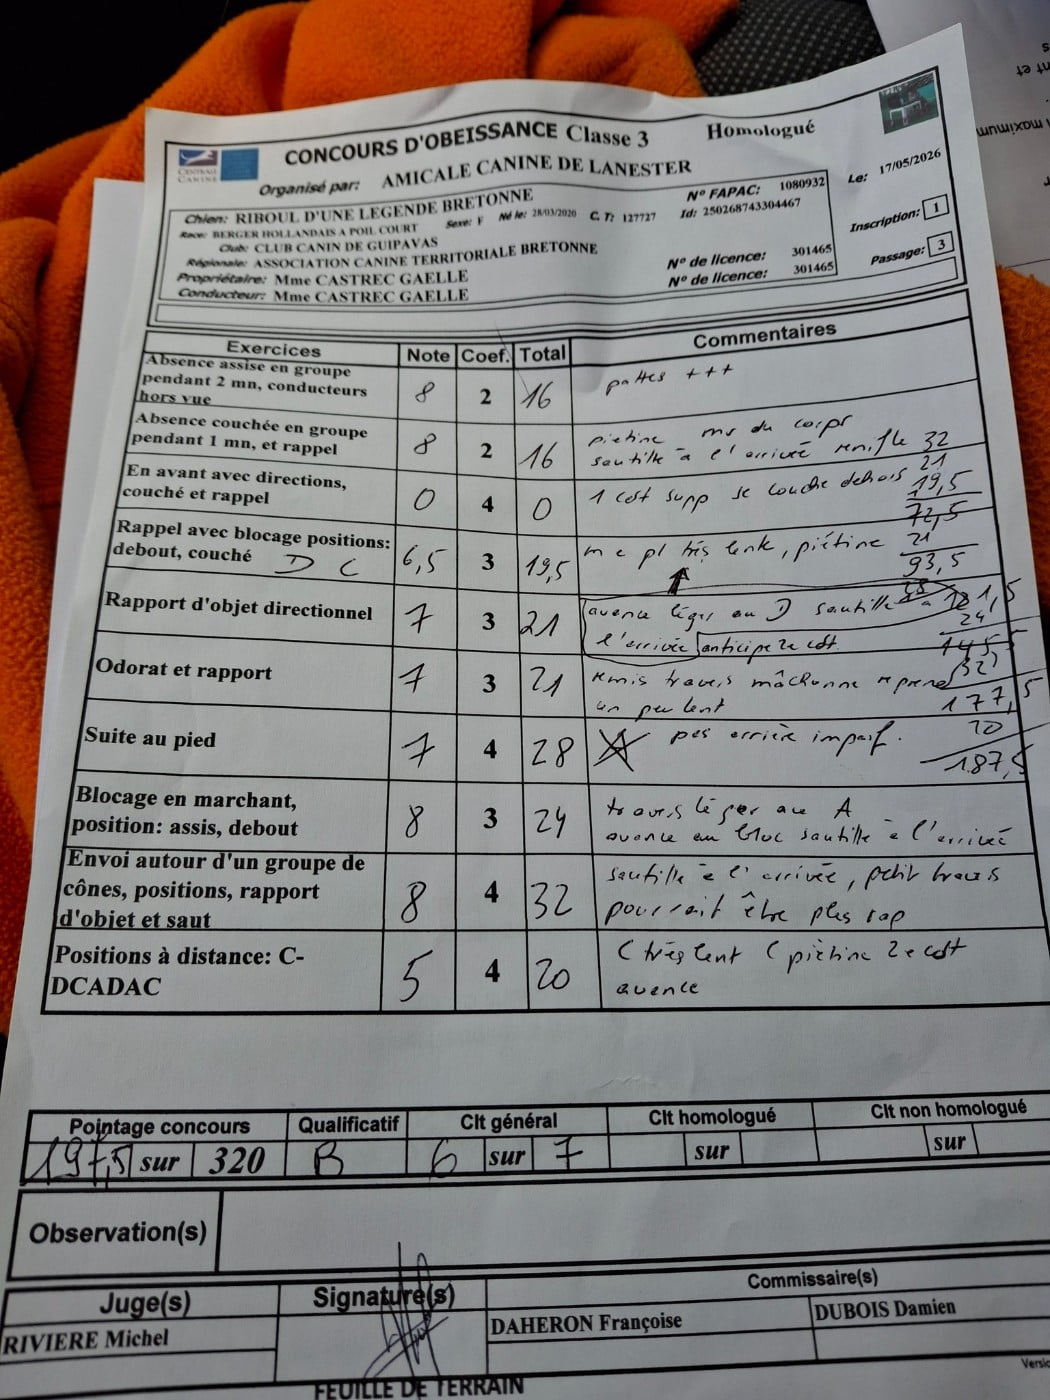 CONCOURS D'OBEISSANCE Classe 3 Homologué
Organisé par: AMICALE CANINE DE LANESTER
Le: 17/05/2026
CENTRALE CANINE
Chien: RIBOUL D'UNE LEGENDE BRETONNE N° FAPAC: 1080932
Race: BERGER HOLLANDAIS A POIL COURT Sexe: F Né le: 28/03/2020 C. T: 127727 Id: 250268743304467
Club: CLUB CANIN DE GUIPAVAS
Régionale: ASSOCIATION CANINE TERRITORIALE BRETONNE
Propriétaire: Mme CASTREC GAELLE N° de licence: 301465
Conducteur: Mme CASTREC GAELLE N° de licence: 301465
Inscription: 1
Passage: 3
Exercices Note Coef. Total Commentaires
Absence assise en groupe
pendant 2 mn, conducteurs
hors vue
8 2 16 pattes +++
Absence couchée en groupe
pendant 1 mn, et rappel
8 2 16 piétine mv du corps
sautille à l'arrivée renifle 32
En avant avec directions,
couché et rappel
0 4 0 1 cdt supp se couche dehors
21
19,5
72,5
Rappel avec blocage positions:
debout, couché D C
6,5 3 19,5 très lente, piétine
21
93,5
Rapport d'objet directionnel
7 3 21 avance léger au D sautille à
l'arrivée anticipe 2e cdt.
28
121,5
24
145,5
Odorat et rapport
7 3 21 remis travers mâchonne reprend
un peu lent
32
177,5
Suite au pied
7 4 28 pas arrière imparf.
20
187,5
Blocage en marchant,
position: assis, debout
8 3 24 travers léger au A
avance au bloc sautille à l'arrivée
Envoi autour d'un groupe de
cônes, positions, rapport
d'objet et saut
8 4 32 sautille à l'arrivée, petit travers
pourrait être plus rap
Positions à distance: C-
DCADAC
5 4 20 C très lent C piétine 2e cdt
avance
Pointage concours Qualificatif Clt général Clt homologué Clt non homologué
197,5 sur 320 B 6 sur 7 sur sur
Observation(s)
Juge(s) Signature(s) Commissaire(s)
RIVIERE Michel DAHERON Françoise DUBOIS Damien
FEUILLE DE TERRAIN
Versio
nt et
maximum